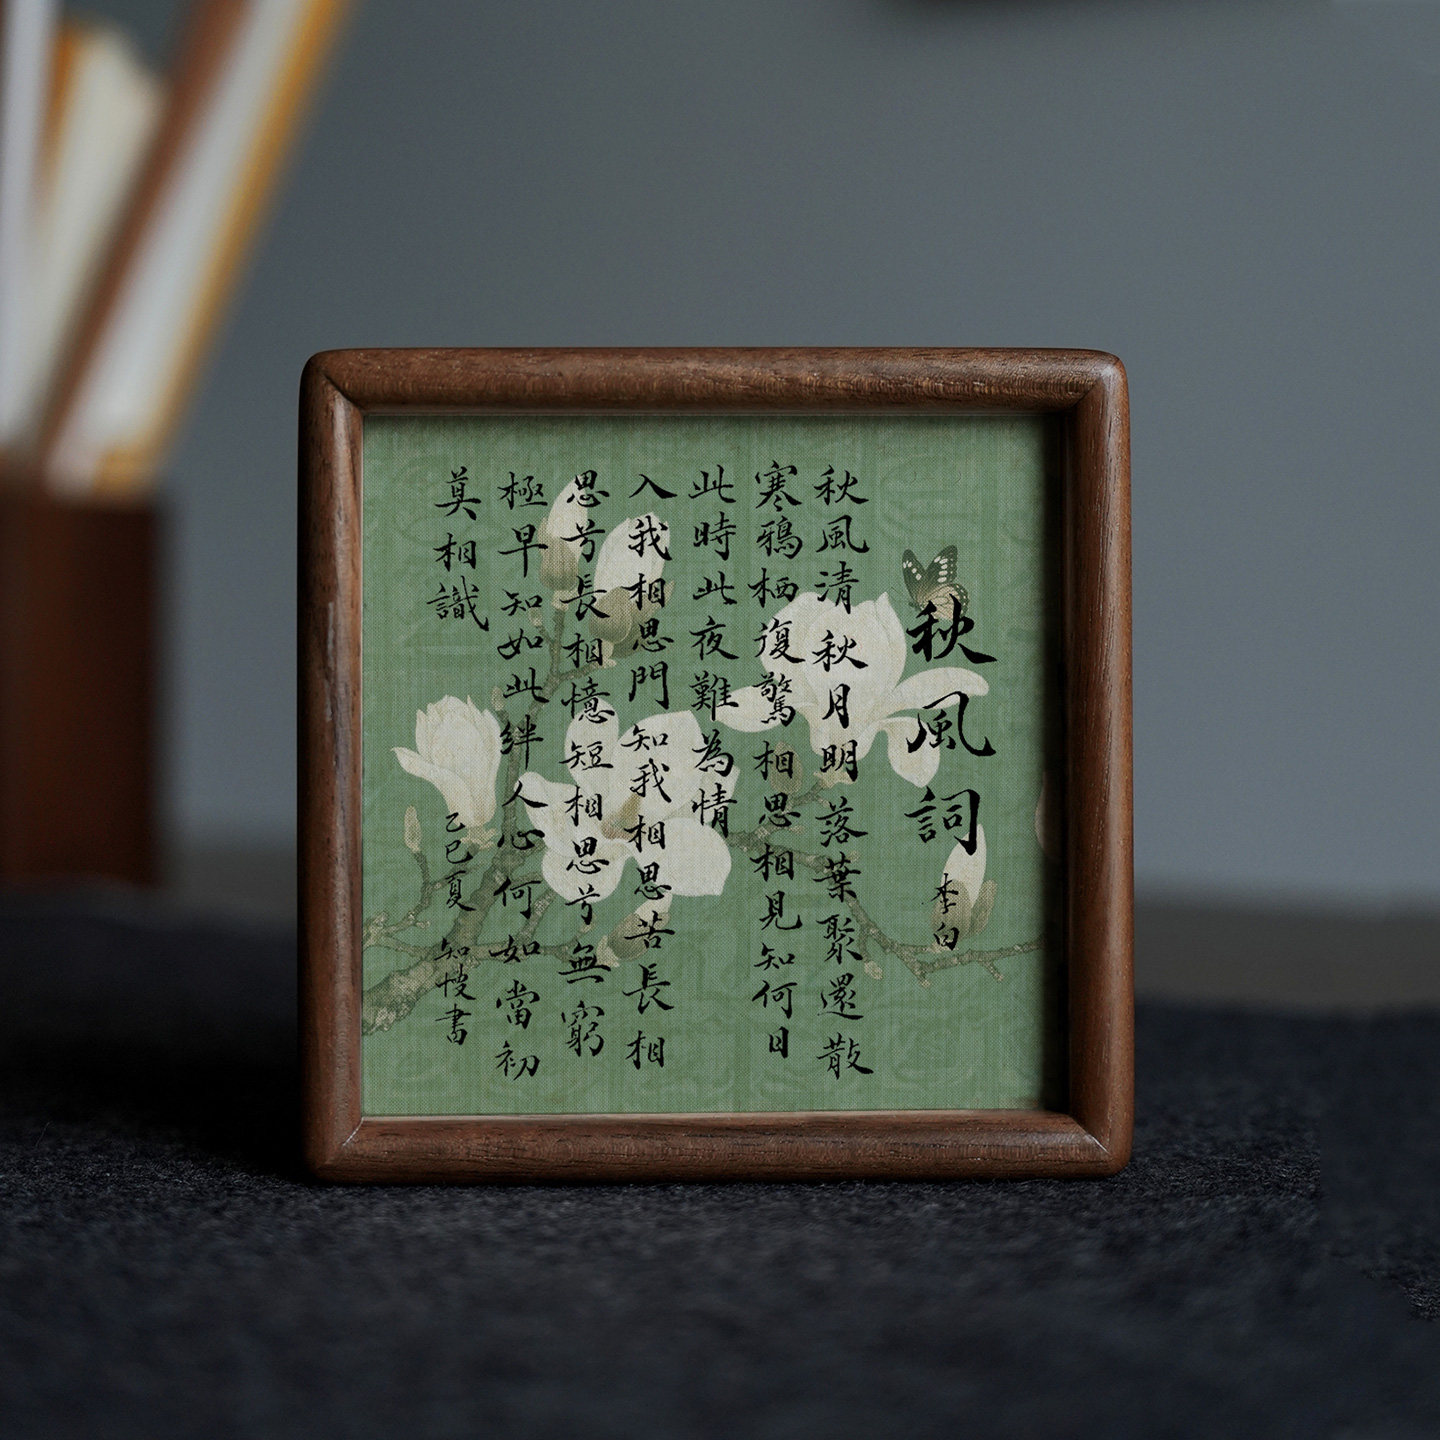 秋風詞
李白
秋風清秋月明落葉聚還散
寒鴉栖復驚相思相見知何日
此時此夜難為情
入我相思門知我相思苦長相
思兮長相憶短相思兮無窮
極早知如此絆人心何如當初
莫相識
乙巳夏 知忮書